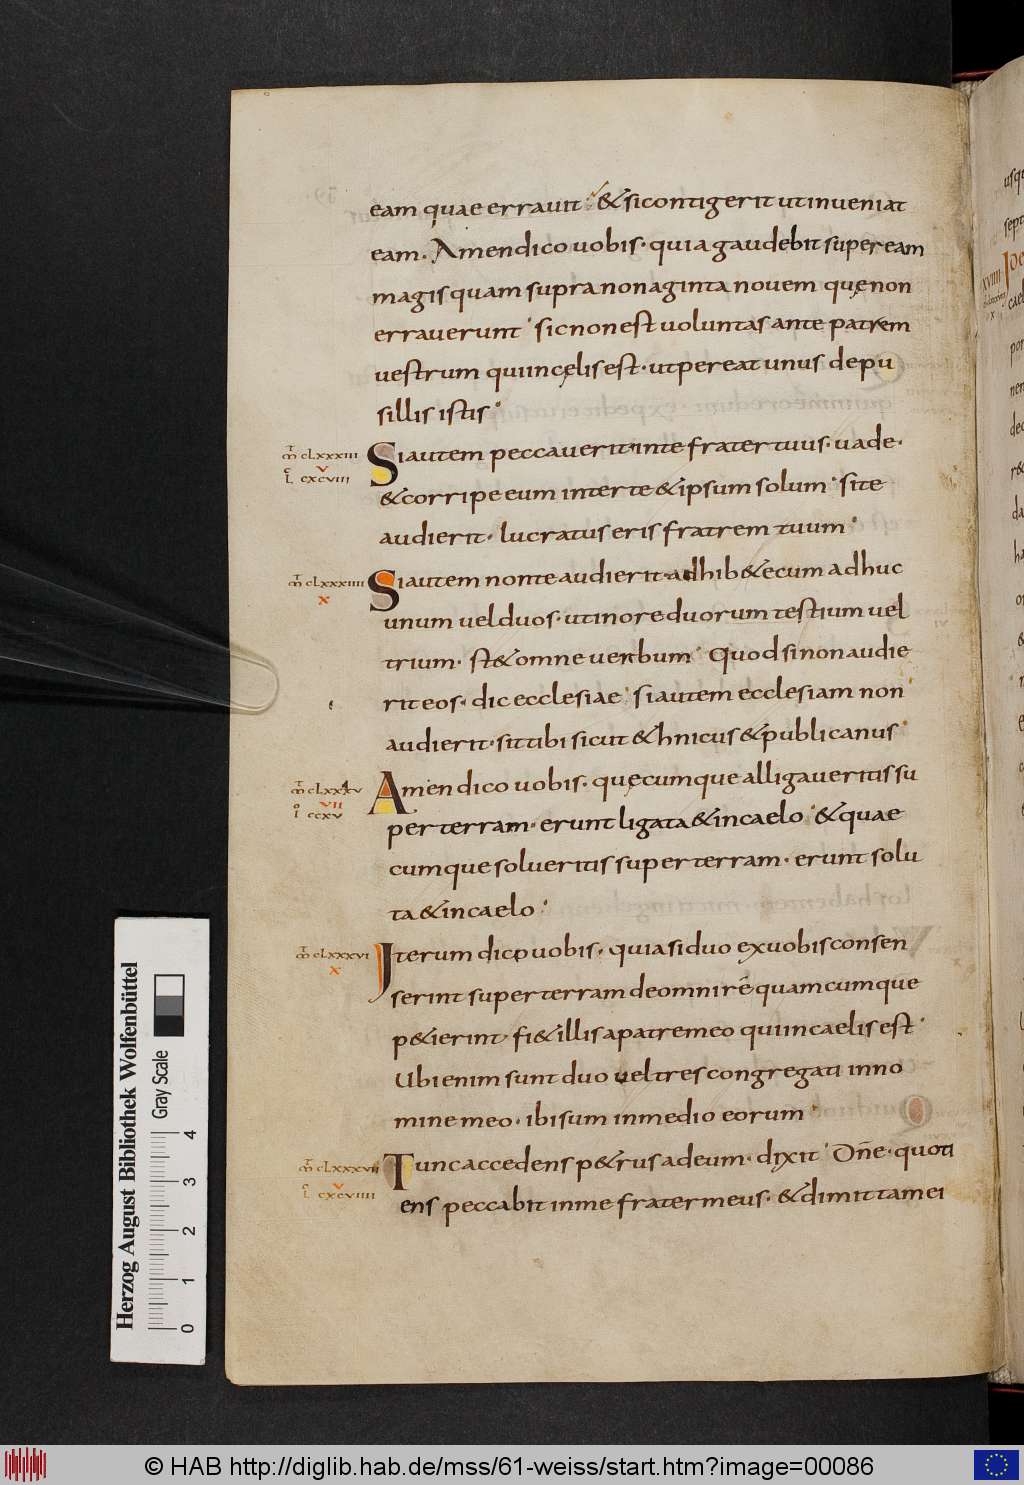 eam quae erravit · & si contigerit ut inveniat
eam · Amen dico vobis · quia gaudebit super eam
magis quam supra nonaginta novem quę non
erraverunt · sic non est voluntas ante patrem
vestrum qui in cęlis est · ut pereat unus de pu
sillis istis ·
m̅ CLXXXIII
L CXCVIII
V
Si autem peccaverit in te frater tuus · vade ·
& corripe eum inter te & ipsum solum · si te
audierit · lucratus eris fratrem tuum ·
m̅ CLXXXIIII
X
Si autem non te audierit · adhib& ecum adhuc
unum vel duos · ut in ore duorum testium vel
trium · st& omne verbum · Quod si non audie
rit eos · dic ecclesiae · si autem ecclesiam non
audierit · sit tibi sicut &hnicus & publicanus ·
m̅ CLXXXV
VII
I CCXV
Amen dico vobis · quęcumque alligaveritis su
per terram · erunt ligata & in caelo · & quae
cumque solveritis super terram · erunt solu
ta & in caelo ·
m̅ CLXXXVI
X
Iterum dico vobis · quia si duo ex vobis consen
serint super terram de omni rē quamcumque
p&ierint · fi& illis a patre meo qui in caelis est ·
Ubi enim sunt duo vel tres congregati in no
mine meo · ibi sum in medio eorum ·
m̅ CLXXXVII
V
L CXCVIIII
Tunc accedens p&rus ad eum · dixit · Dn̄e · quoti
ens peccabit in me frater meus · & dimittam ei
XVIII
X
Herzog August Bibliothek Wolfenbüttel
Gray Scale
0 1 2 3 4
© HAB http://diglib.hab.de/mss/61-weiss/start.htm?image=00086